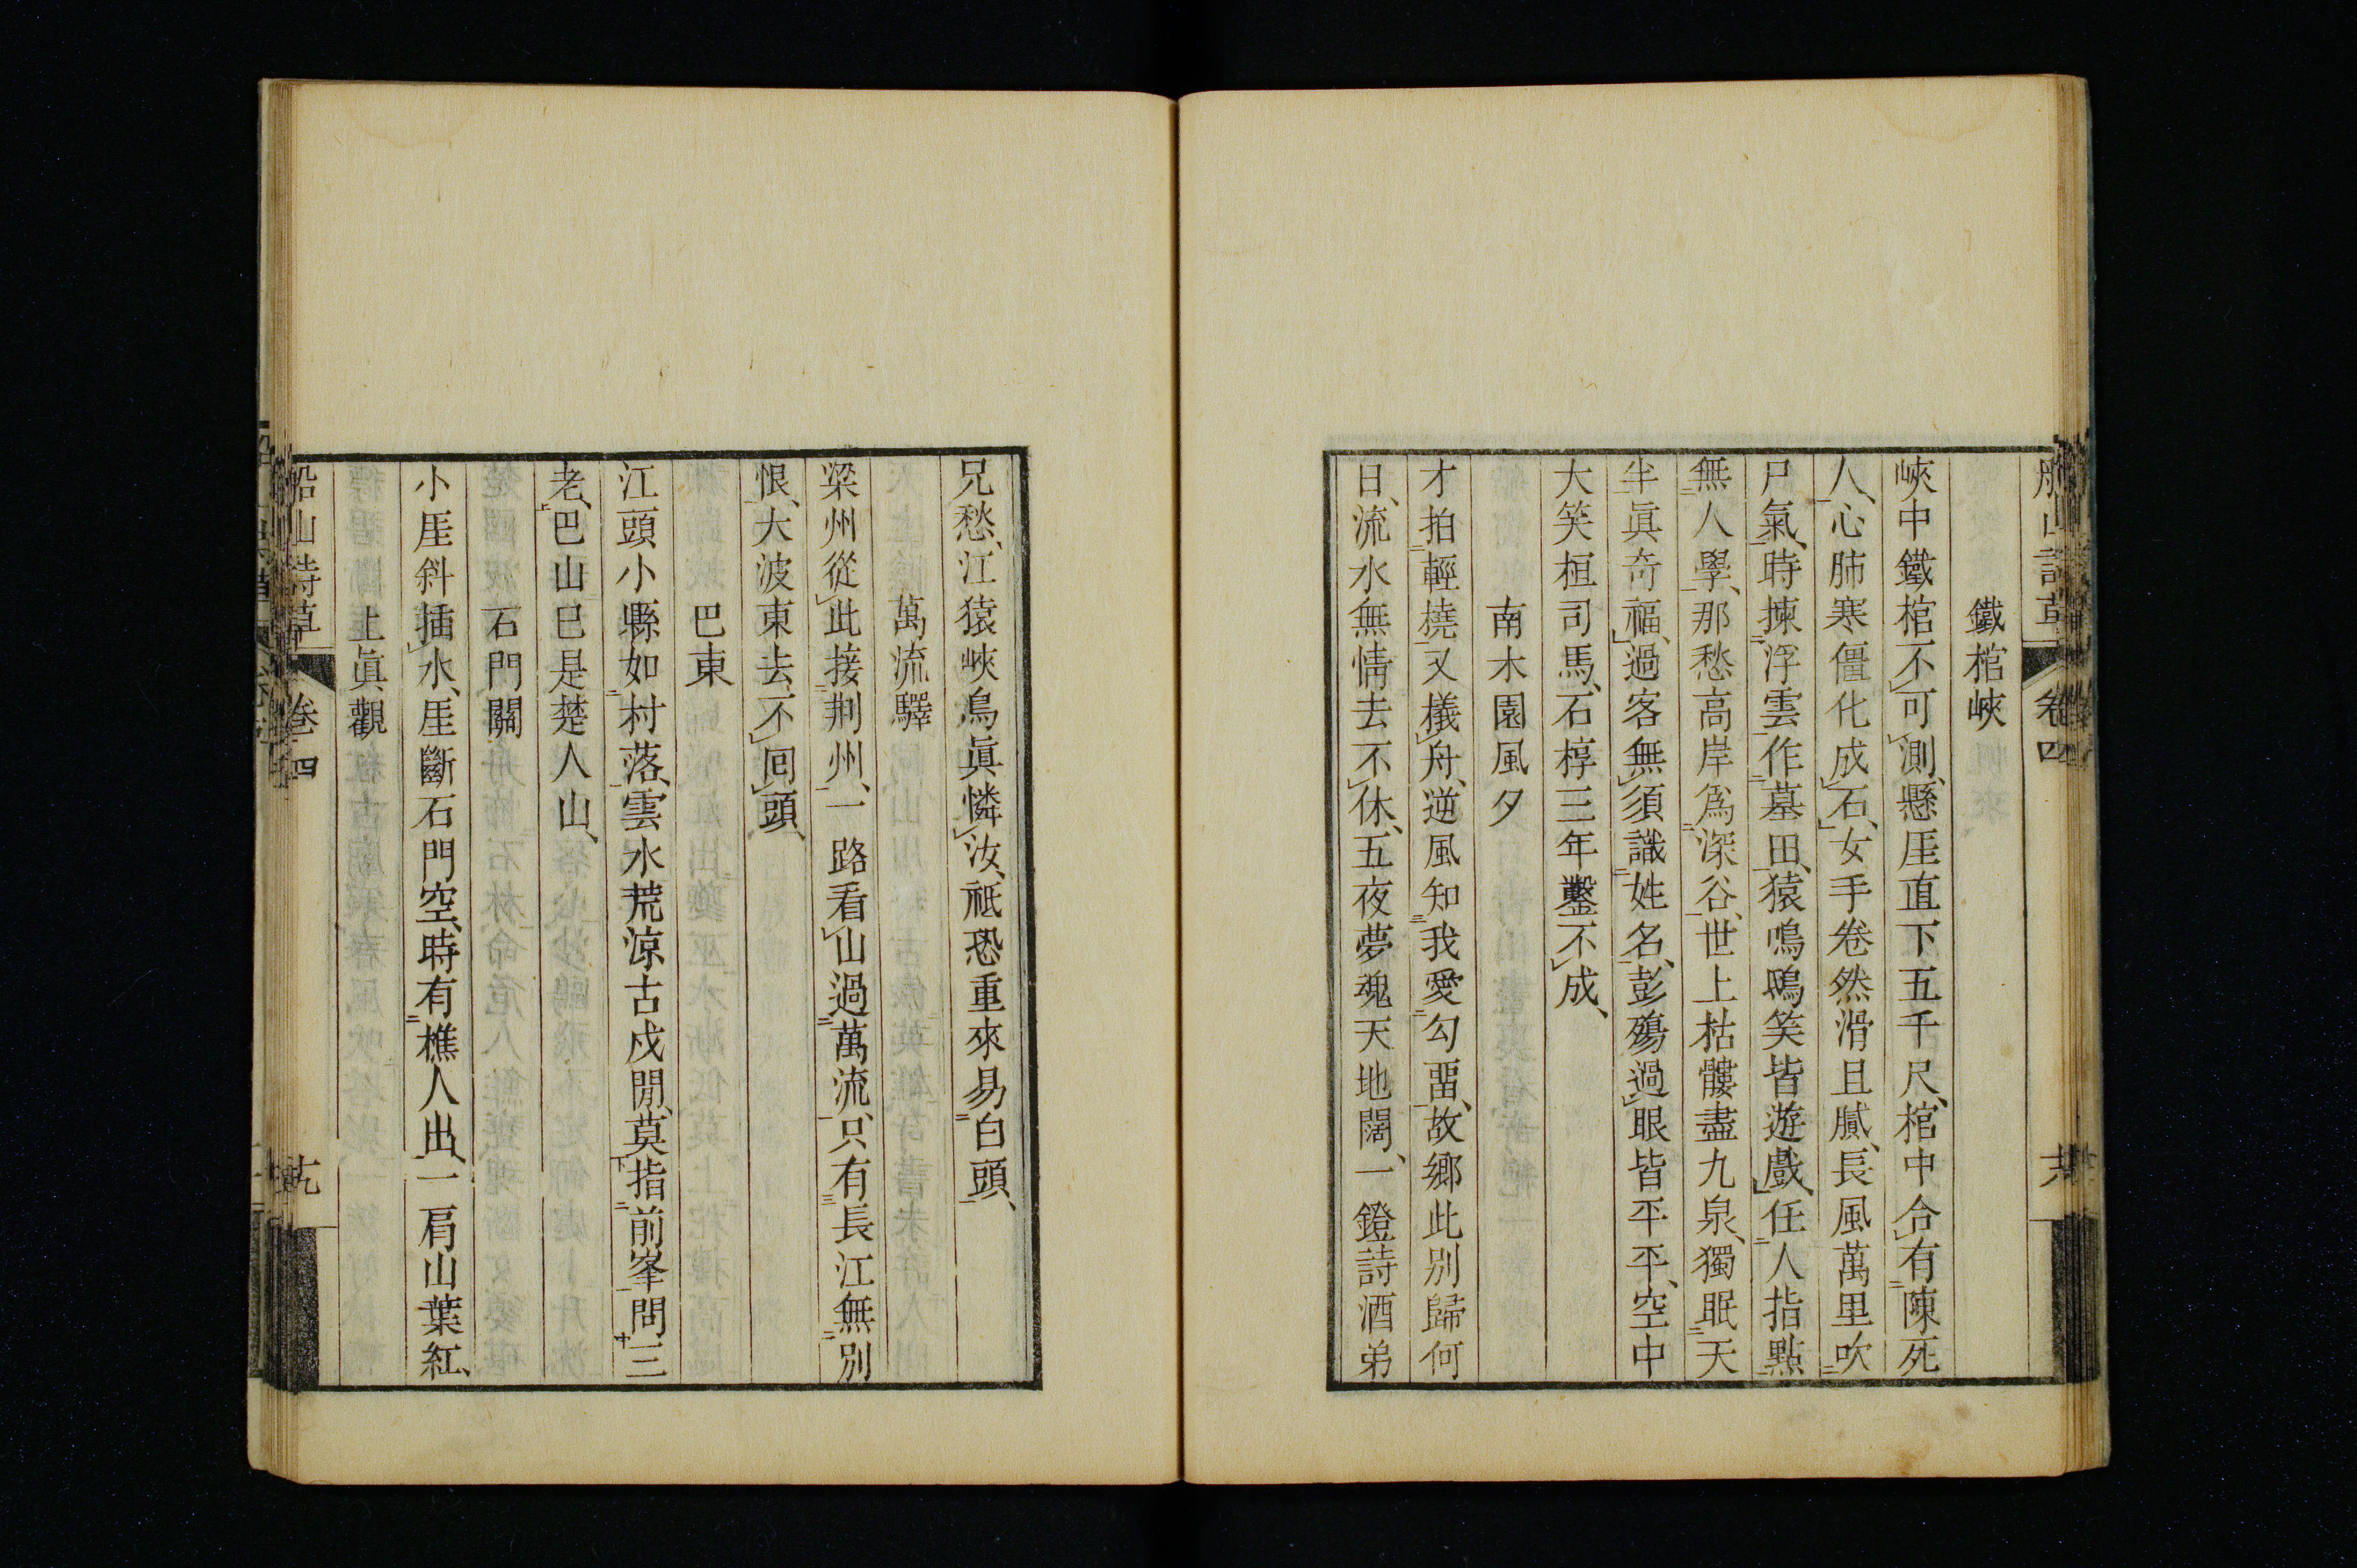 船山詩草 卷四
鐵棺峽
峽中鐵棺不可測、懸厓直下五千尺、棺中合有陳死
人、心肺寒僵化成石、女手卷然滑且膩、長風萬里吹
尸氣、時揀浮雲作墓田、猿鳴鴞笑皆遊戲、任人指點
無人學、那愁高岸爲深谷、世上枯髏盡九泉、獨眠天
半眞奇福、過客無須識姓名、彭殤過眼皆平平、空中
大笑桓司馬、石椁三年鑿不成、
南木園風夕
才拍輕橈又檥舟、逆風知我愛勾畱、故鄉此別歸何
日、流水無情去不休、五夜夢魂天地闊、一鐙詩酒弟
兄愁、江猿峽鳥眞憐汝、祗恐重來易白頭、
萬流驛
梁州從此接荆州、一路看山過萬流、只有長江無別
恨、大波東去不回頭、
巴東
江頭小縣如村落、雲水荒涼古戍閒、莫指前峯問三
老、巴山已是楚人山、
石門關
小厓斜插水、厓斷石門空、時有樵人出、一肩山葉紅、
上眞觀
船山詩草 卷四